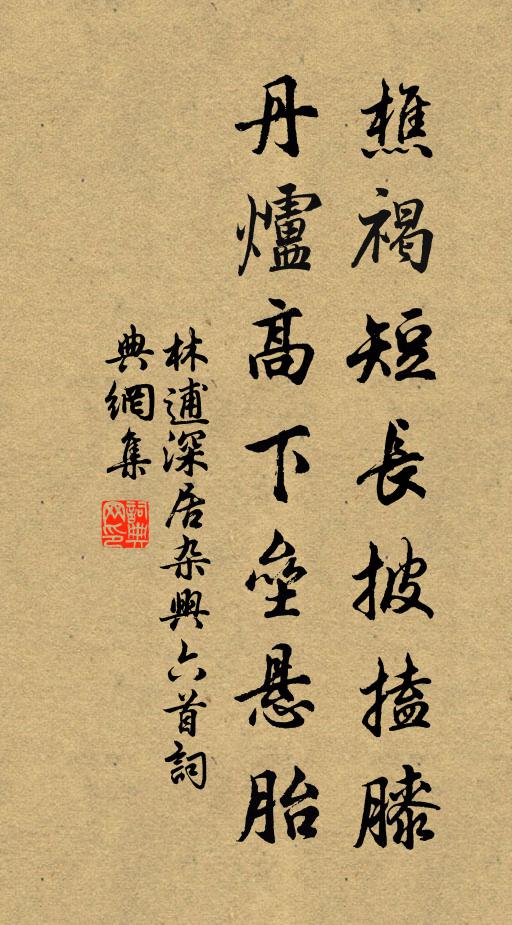 樵褐短長披搕膝
丹爐高下壘悬胎
林逋深居杂興六首詞
典網集
詞典網印